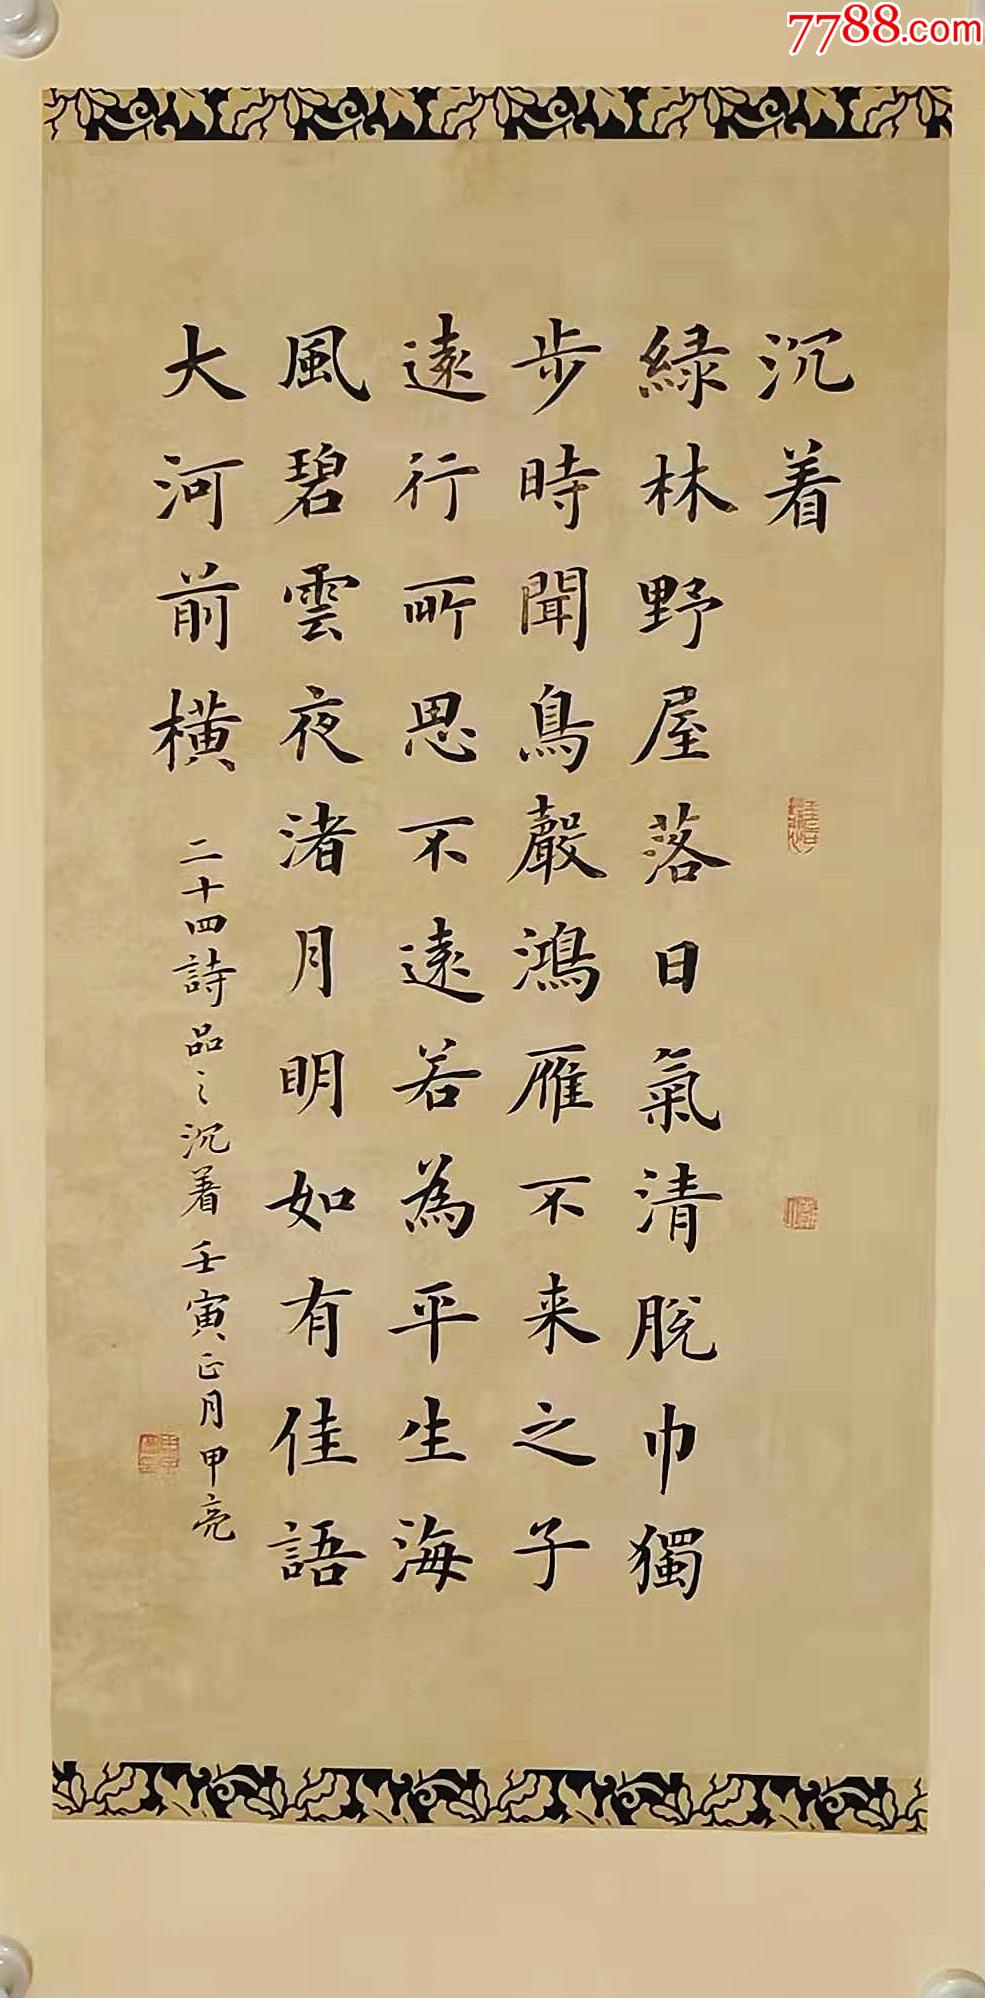 7788.com
沉着
緑林野屋落日氣清脱巾獨
步時聞鳥聲鴻雁不来之子
遠行所思不遠若為平生海
風碧雲夜渚月明如有佳語
大河前橫
二十四詩品之沉着壬寅正月甲亮